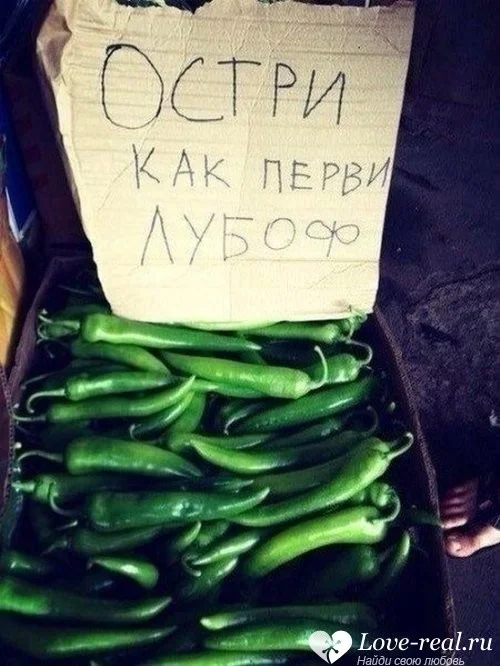 ОСТРИ
КАК ПЕРВИ
ЛУБОФ
Love-real.ru
Найди свою любовь